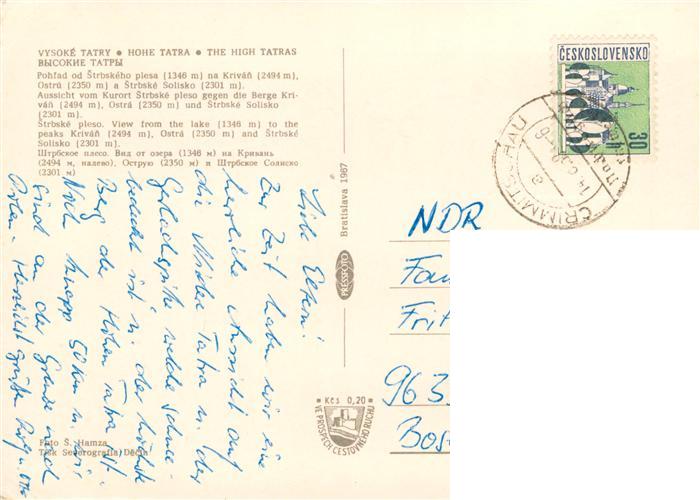 VYSOKÉ TATRY ● HOHE TATRA ● THE HIGH TATRAS
ВЫСОКИЕ ТАТРЫ
Pohľad od Štrbského plesa (1346 m) na Kriváň (2494 m),
Ostrú (2350 m) a Štrbské Solisko (2301 m).
Aussicht vom Kurort Štrbské pleso gegen die Berge Kri-
váň (2494 m), Ostrá (2350 m) und Štrbské Solisko
(2301 m).
Štrbské pleso. View from the lake (1346 m) to the
peaks Kriváň (2494 m), Ostrá (2350 m) and Štrbské
Solisko (2301 m).
Штрбское плесо. Вид от озера (1346 м) на Кривань
(2494 м, налево), Острую (2350 м) и Штрбское Солиско
(2301 м)
Liebe Eltern!
Zur Zeit haben wir eine
herrliche Aussicht auf
die Niedere Tatra u. der
Gerlachspitze welche schnee-
bedeckt ist u. der höchste
Berg der Hohen Tatra ist.
Noch knapp 50 km u. wir
sind an der Grenze nach
Polen. Herzlichst grüßen
Foto Š. Hamza
Tisk Severografia Děčín
Bratislava 1967
PRESSFOTO
Kčs 0,20
VE PROSPĚCH CESTOVNÍHO RUCHU
ČESKOSLOVENSKO
30 h
CRIMMITSCHAU
NDR
Fam
Frit
963
Bos